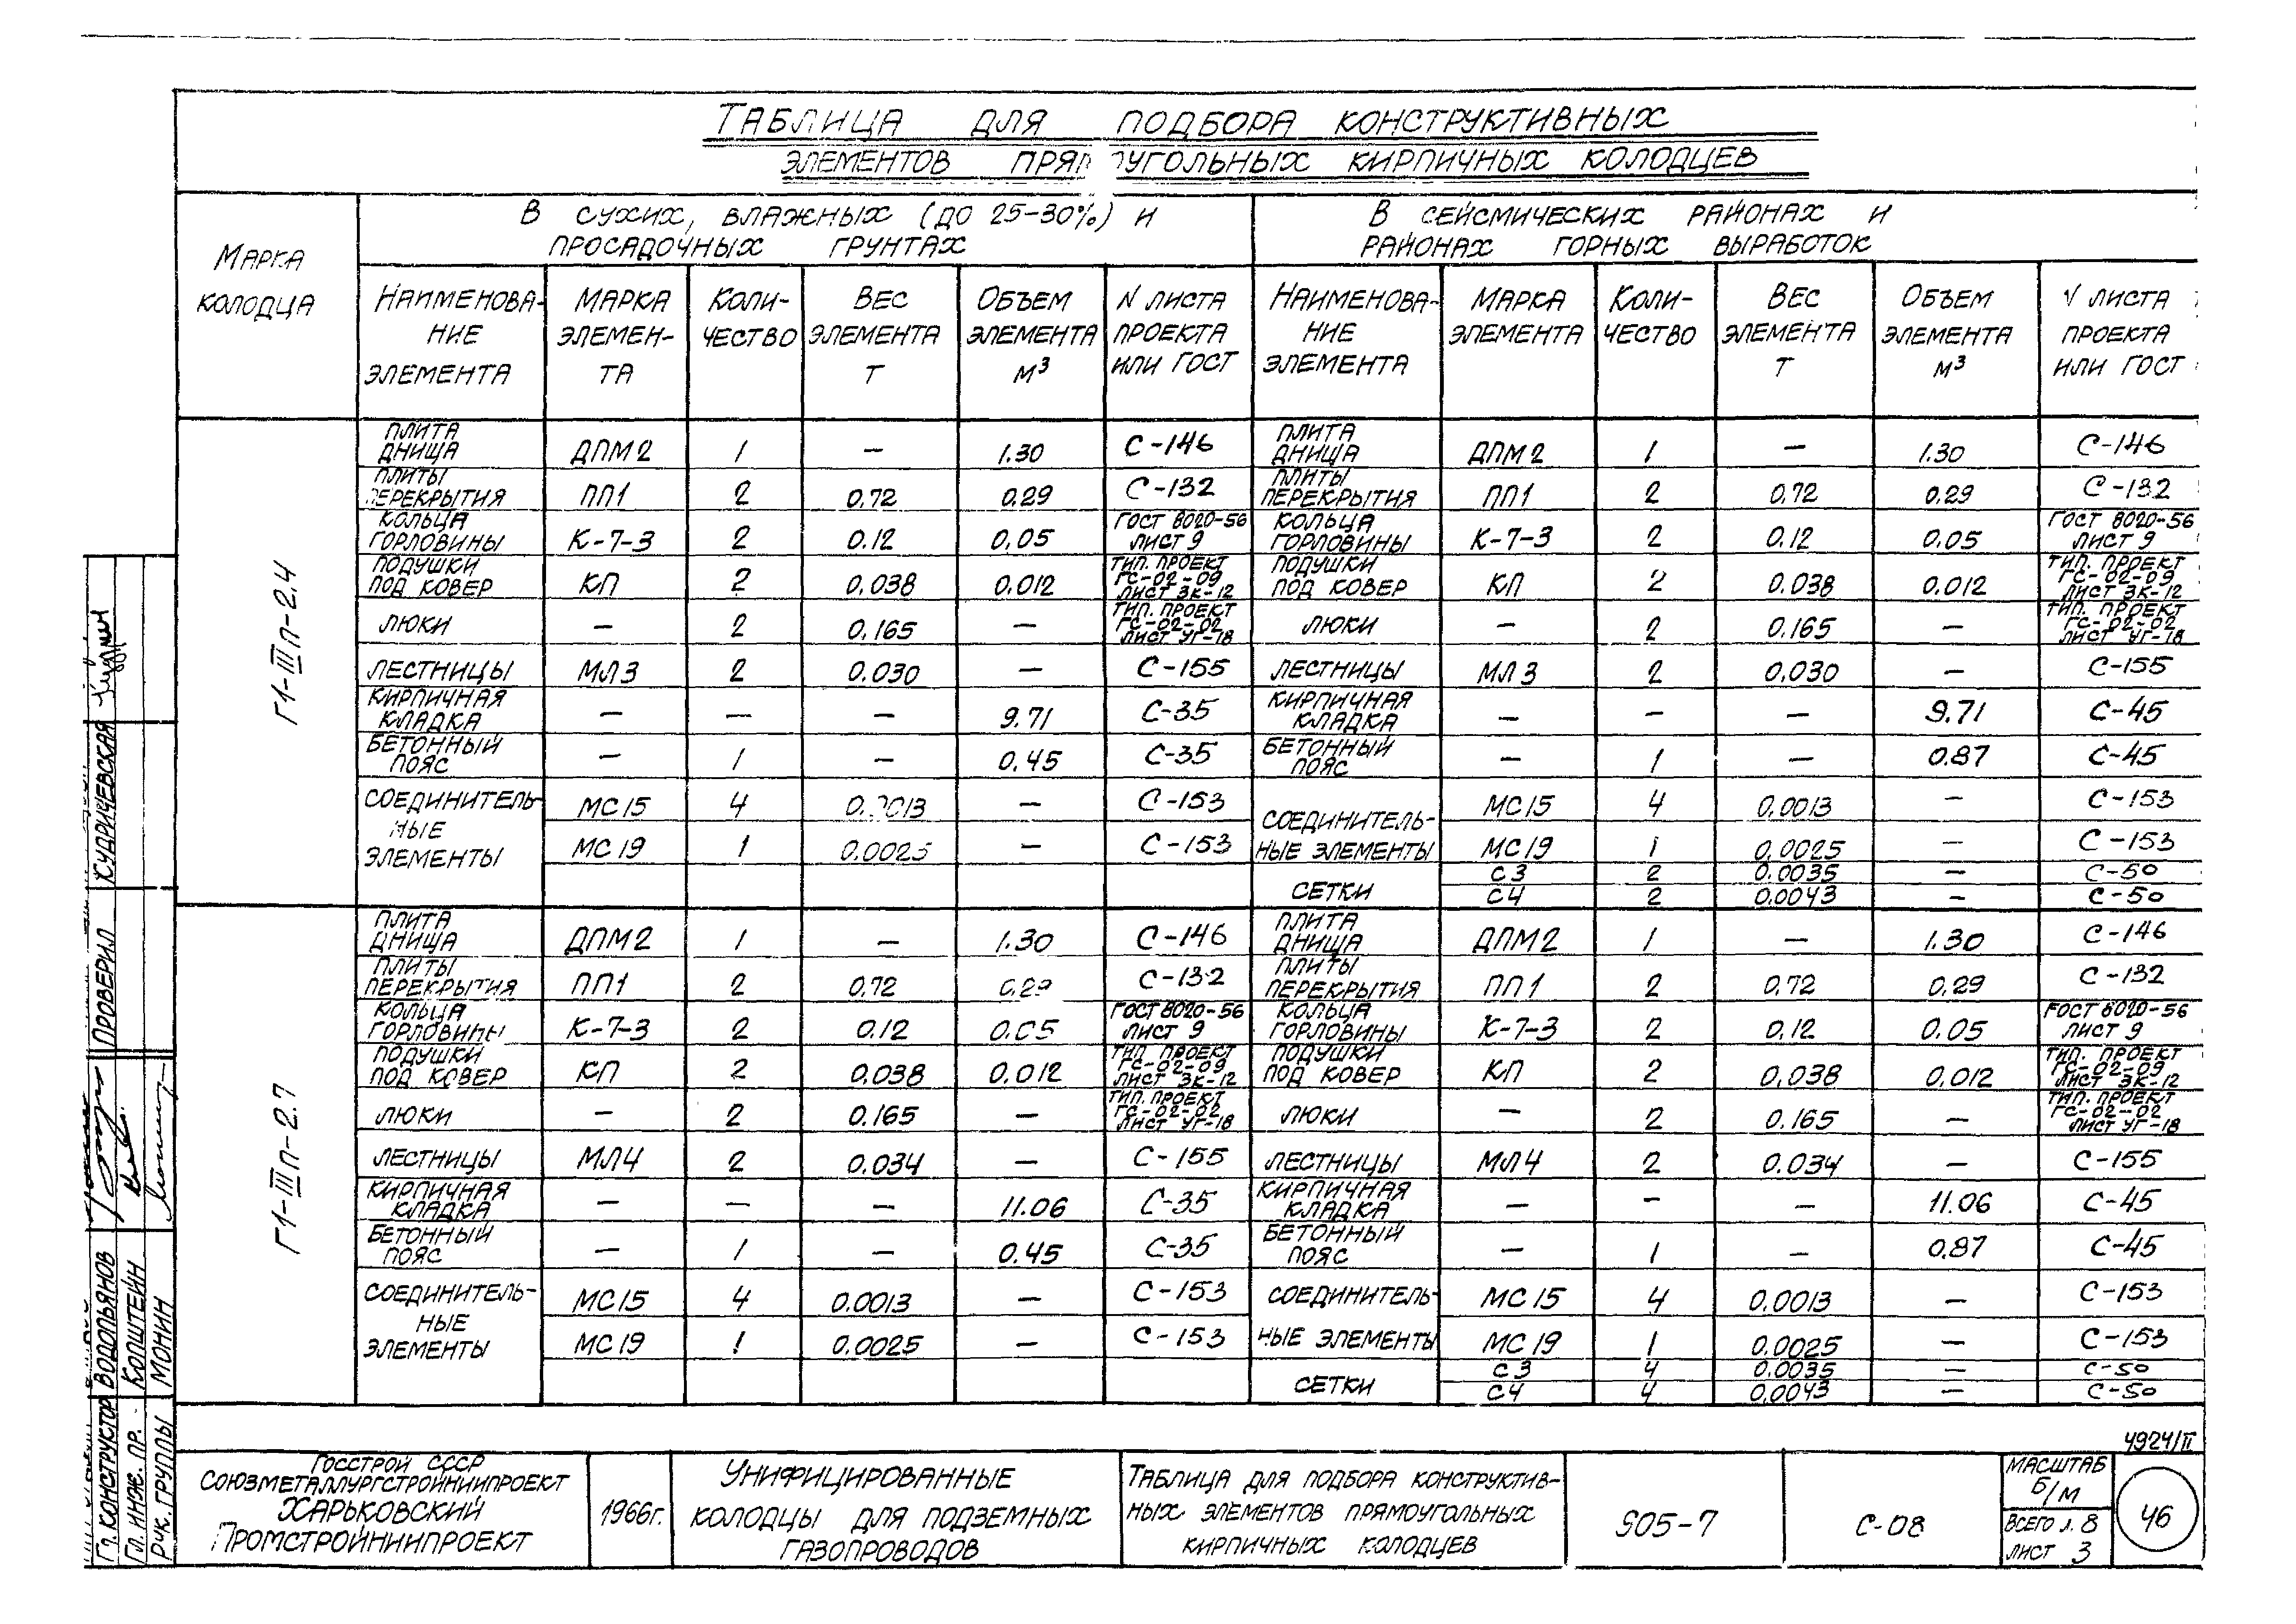 Таблица для подбора конструктивных
элементов прямоугольных кирпичных колодцев
Марка колодца
В сухих, влажных (до 25-30%) и
просадочных грунтах
В сейсмических районах и
районах горных выработок
Наименование элемента | Марка элемента | Количество | Вес элемента т | Объем элемента м³ | N листа проекта или ГОСТ | Наименование элемента | Марка элемента | Количество | Вес элемента т | Объем элемента м³ | листа проекта или ГОСТ
Г1-IIIп-2,4
Плита днища | ДПМ2 | 1 | — | 1.30 | С-146 | Плита днища | ДПМ2 | 1 | — | 1.30 | С-146
Плиты перекрытия | ПП1 | 2 | 0.72 | 0.29 | С-132 | Плиты перекрытия | ПП1 | 2 | 0.72 | 0.29 | С-132
Кольца горловины | К-7-3 | 2 | 0.12 | 0,05 | ГОСТ 8020-56 лист 9 | Кольца горловины | К-7-3 | 2 | 0.12 | 0.05 | ГОСТ 8020-56 лист 9
Подушки под ковер | КП | 2 | 0,038 | 0.012 | Тип. проект ГС-02-09 лист ЗК-12 | Подушки под ковер | КП | 2 | 0.038 | 0.012 | Тип. проект ГС-02-09 лист ЗК-12
Люки | — | 2 | 0,165 | — | Тип. проект ГС-02-02 лист УГ-18 | Люки | — | 2 | 0.165 | — | Тип. проект ГС-02-02 лист УГ-18
Лестницы | МЛ3 | 2 | 0.030 | — | С-155 | Лестницы | МЛ3 | 2 | 0.030 | — | С-155
Кирпичная кладка | — | — | — | 9.71 | С-35 | Кирпичная кладка | — | — | — | 9.71 | С-45
Бетонный пояс | — | 1 | — | 0.45 | С-35 | Бетонный пояс | — | 1 | — | 0.87 | С-45
Соединительные элементы | МС15 | 4 | 0.0013 | — | С-153 | Соединительные элементы | МС15 | 4 | 0.0013 | — | С-153
МС19 | 1 | 0.0025 | — | С-153 | МС19 | 1 | 0.0025 | — | С-153
Сетки | С3 | 2 | 0.0035 | — | С-50
С4 | 2 | 0.0043 | — | С-50
Г1-IIIп-2.7
Плита днища | ДПМ2 | 1 | — | 1.30 | С-146 | Плита днища | ДПМ2 | 1 | — | 1.30 | С-146
Плиты перекрытия | ПП1 | 2 | 0.72 | 0.29 | С-132 | Плиты перекрытия | ПП1 | 2 | 0.72 | 0.29 | С-132
Кольца горловины | К-7-3 | 2 | 0.12 | 0.05 | ГОСТ 8020-56 лист 9 | Кольца горловины | К-7-3 | 2 | 0.12 | 0.05 | ГОСТ 8020-56 лист 9
Подушки под ковер | КП | 2 | 0.038 | 0.012 | Тип. проект ГС-02-09 лист ЗК-12 | Подушки под ковер | КП | 2 | 0,038 | 0,012 | Тип. проект ГС-02-09 лист ЗК-12
Люки | — | 2 | 0.165 | — | Тип. проект ГС-02-02 лист УГ-18 | Люки | — | 2 | 0.165 | — | Тип. проект ГС-02-02 лист УГ-18
Лестницы | МЛ4 | 2 | 0.034 | — | С-155 | Лестницы | МЛ4 | 2 | 0.034 | — | С-155
Кирпичная кладка | — | — | — | 11.06 | С-35 | Кирпичная кладка | — | — | — | 11.06 | С-45
Бетонный пояс | — | 1 | — | 0.45 | С-35 | Бетонный пояс | — | 1 | — | 0.87 | С-45
Соединительные элементы | МС15 | 4 | 0.0013 | — | С-153 | Соединительные элементы | МС15 | 4 | 0.0013 | — | С-153
МС19 | 1 | 0.0025 | — | С-153 | МС19 | 1 | 0.0025 | — | С-153
Сетки | С3 | 4 | 0.0035 | — | С-50
С4 | 4 | 0.0043 | — | С-50
4924/II
Госстрой СССР
Союзметаллургстройниипроект
Харьковский
Промстройниипроект
1966г.
Унифицированные
колодцы для подземных
газопроводов
Таблица для подбора конструктив-
ных элементов прямоугольных
кирпичных колодцев
905-7
С-08
Масштаб
Б/м
Всего л. 8
Лист 3
46
Гл. конструктор Водольянов
Гл. инж. пр. Колштейн
Рук. группы Монин
Проверил Кударичевская